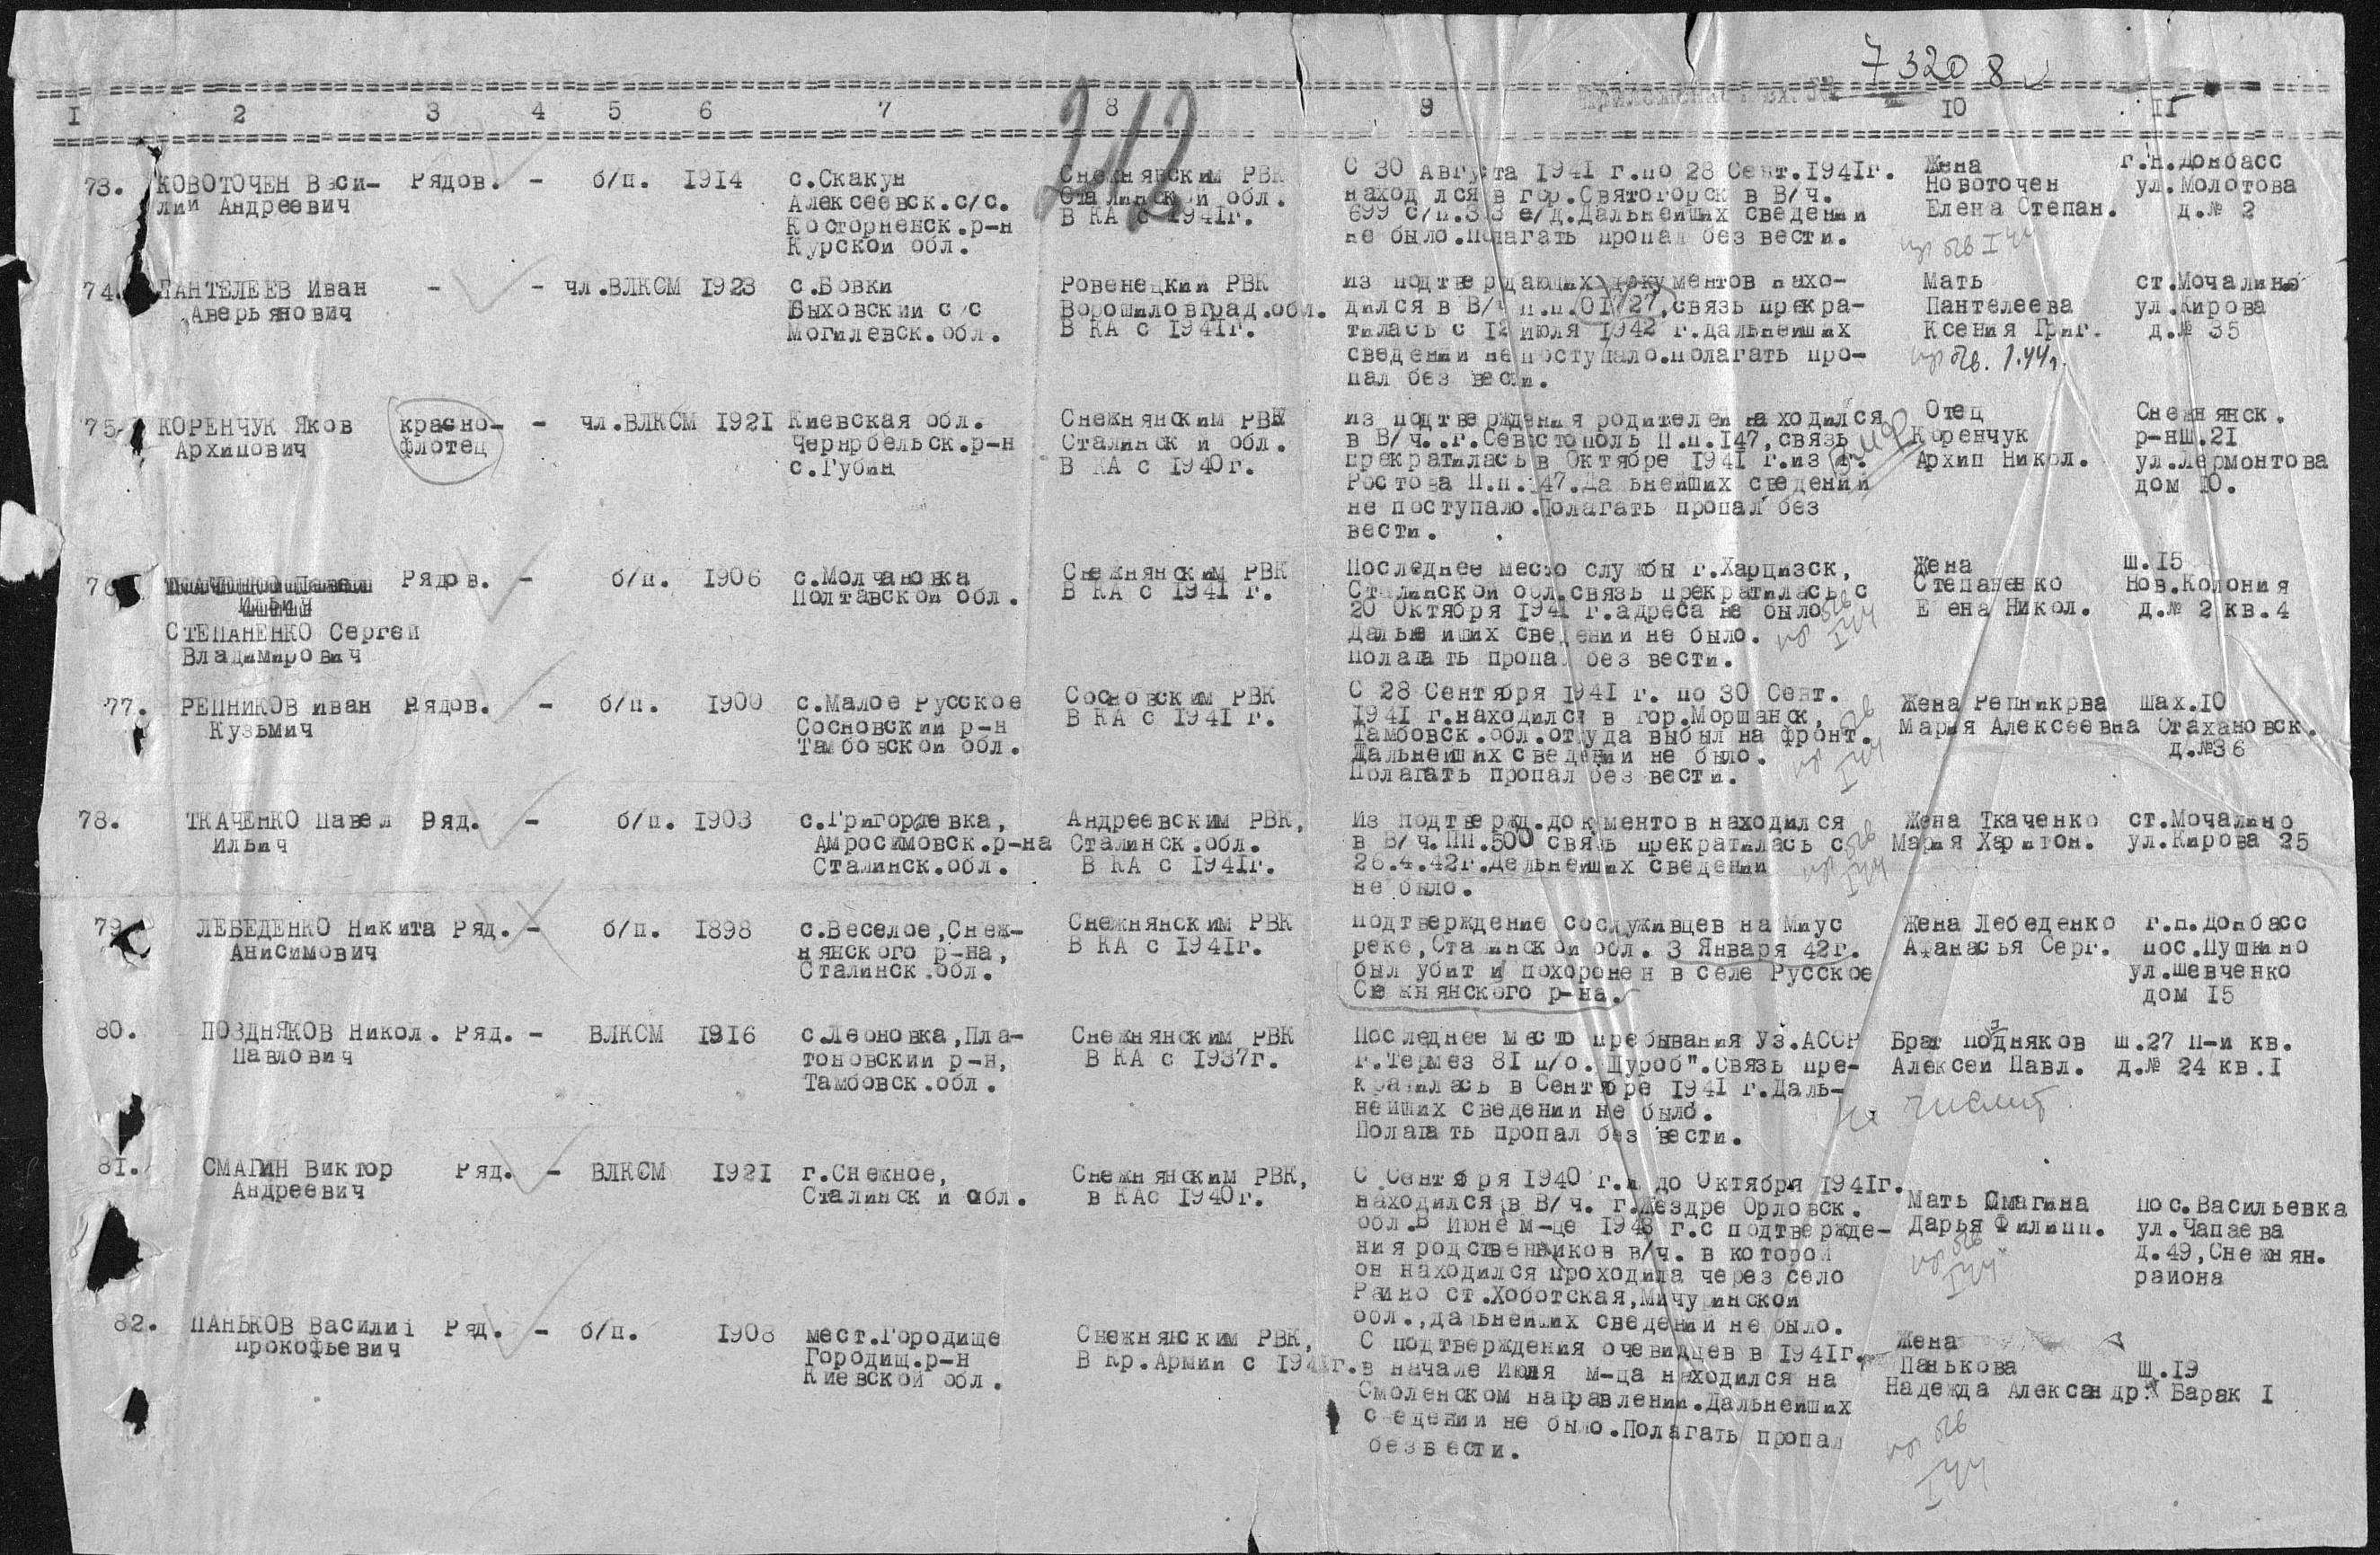 73208
1 2 3 4 5 6 7 8 9 10 11
212
73. НОВОТОЧЕН Васи- Рядов. - б/п. 1914 с.Скакун Снежнянским РВК С 30 Августа 1941 г.по 28 Сент.1941г. Жена г.п.Донбасс
лий Андреевич Алексеевск.с/с. Сталинской обл. находился в гор.Святогорск в В/ч. Новоточен ул.Молотова
Косторненск.р-н В КА с 1941г. 699 с/п.393 с/д.Дальнейших сведений Елена Степан. д.№ 2
Курской обл. не было.Полагать пропал без вести.
74. ПАНТЕЛЕЕВ Иван - - чл.ВЛКСМ 1923 с.Бовки Ровенецкий РВК Из подтверждающих документов нахо- Мать ст.Мочалино
Аверьянович Быховский с/с Ворошиловград.обл. дился в В/ч п.п.01727,связь прекра- Пантелеева ул.Кирова
Могилевск.обл. В КА с 1941г. тилась с 12 июля 1942 г.дальнейших Ксения Григ. д.№ 35
сведений не поступало.полагать про- 1.44г.
пал без вести.
75. КОРЕНЧУК Яков красно- - чл.ВЛКСМ 1921 Киевская обл. Снежнянским РВК Из подтверждения родителей находился Отец Снежнянск.
Архипович флотец Чернрбельск.р-н Сталинск й обл. в В/ч. г.Севастополь П.п.147,связь Коренчук р-нш.21
с.Губин В КА с 1940г. прекратилась в Октябре 1941 г.из г. Архип Никол. ул.Лермонтова
Ростова П.п.147.Дальнейших сведений дом 10.
не поступало.Полагать пропал без
вести.
76. Рядов. - б/п. 1906 с.Молчановка Снежнянским РВК Последнее место службы г.Харцизск, Жена ш.15
Полтавской обл. В КА с 1941 г. Сталинской обл.связь прекратилась с Степаненко Нов.Колония
20 Октября 1941 г.адреса не было Е ена Никол. д.№ 2 кв.4
СТЕПАНЕНКО Сергей Дальнейших сведений не было.
Владимирович Полагать пропал без вести.
77. РЕПНИКОВ Иван Рядов. - б/п. 1900 с.Малое Русское Сосновским РВК С 28 Сентября 1941 г. по 30 Сент. Жена Репникрва шах.10
Кузьмич Сосновский р-н В КА с 1941 г. 1941 г.находился в гор.Моршанск, Мария Алексеевна Стахановск.
Тамбовской обл. Тамбовск.обл.откуда выбыл на фронт. д.№36
Дальнейших сведений не было.
Полагать пропал без вести.
78. ТКАЧЕНКО Павел Ряд. - б/п. 1903 с.Григорьевка, Андреевским РВК, Из подтвержд.документов находился Жена Ткаченко ст.Мочалино
Ильич Амросимовск.р-на Сталинск.обл. в В/ч.ПП.500 связь прекратилась с Мария Харитон. ул.Кирова 25
Сталинск.обл. В КА с 1941г. 26.4.42г.Дельнейших сведений
не было.
79. ЛЕБЕДЕНКО Никита Ряд. - б/п. 1898 с.Веселое,Снеж- Снежнянским РВК Подтверждение сослуживцев на Миус Жена Лебеденко г.п.Донбасс
Анисимович нянского р-на, В КА с 1941г. реке,Сталинской обл. 3 Января 42г. Афанасья Серг. пос.Пушкино
Сталинск.обл. был убит и похоронен в селе Русское ул.Шевченко
Снежнянского р-на. дом 15
80. ПОЗДНЯКОВ Никол. Ряд. - ВЛКСМ 1916 с.Леоновка,Пла- Снежнянским РВК Последнее место пребывания Уз.АССР Брат Поздняков ш.27 П-й кв.
Павлович тоновский р-н, В КА с 1937г. г.Термез 81 п/о."Щуроб".Связь пре- Алексей Павл. д.№ 24 кв.1
Тамбовск.обл. кратилась в Сентябре 1941 г.Даль-
нейших сведений не было. не числит
Полагать пропал без вести.
81. СМАГИН Виктор Ряд. - ВЛКСМ 1921 г.Снежное, Снежнянским РВК, С Сентября 1940 г.и до Октября 1941г.
Андреевич Сталинск й обл. в КАс 1940г. находился в В/ч. г.Жездре Орловск. Мать Смагина пос.Васильевка
обл.В Июне м-це 1943 г.с подтвержде- Дарья Филипп. ул.Чапаева
ния родственников в/ч. в которой д.49,Снежнян.
он находился проходила через село района
Раино ст.Хоботская,Мичуринской
обл.,дальнейших сведений не было.
82. ПАНЬКОВ Василий Ряд. - б/п. 1908 мест.Городище Снежнянским РВК, С подтверждения очевидцев в 1941г. Жена
Прокофьевич Городищ.р-н В Кр.Армии с 1941г. в начале Июля м-ца находился на Панькова Ш.19
Киевской обл. Смоленском направлении.Дальнейших Надежда Александр. Барак 1
сведений не было.Полагать пропал
без вести.